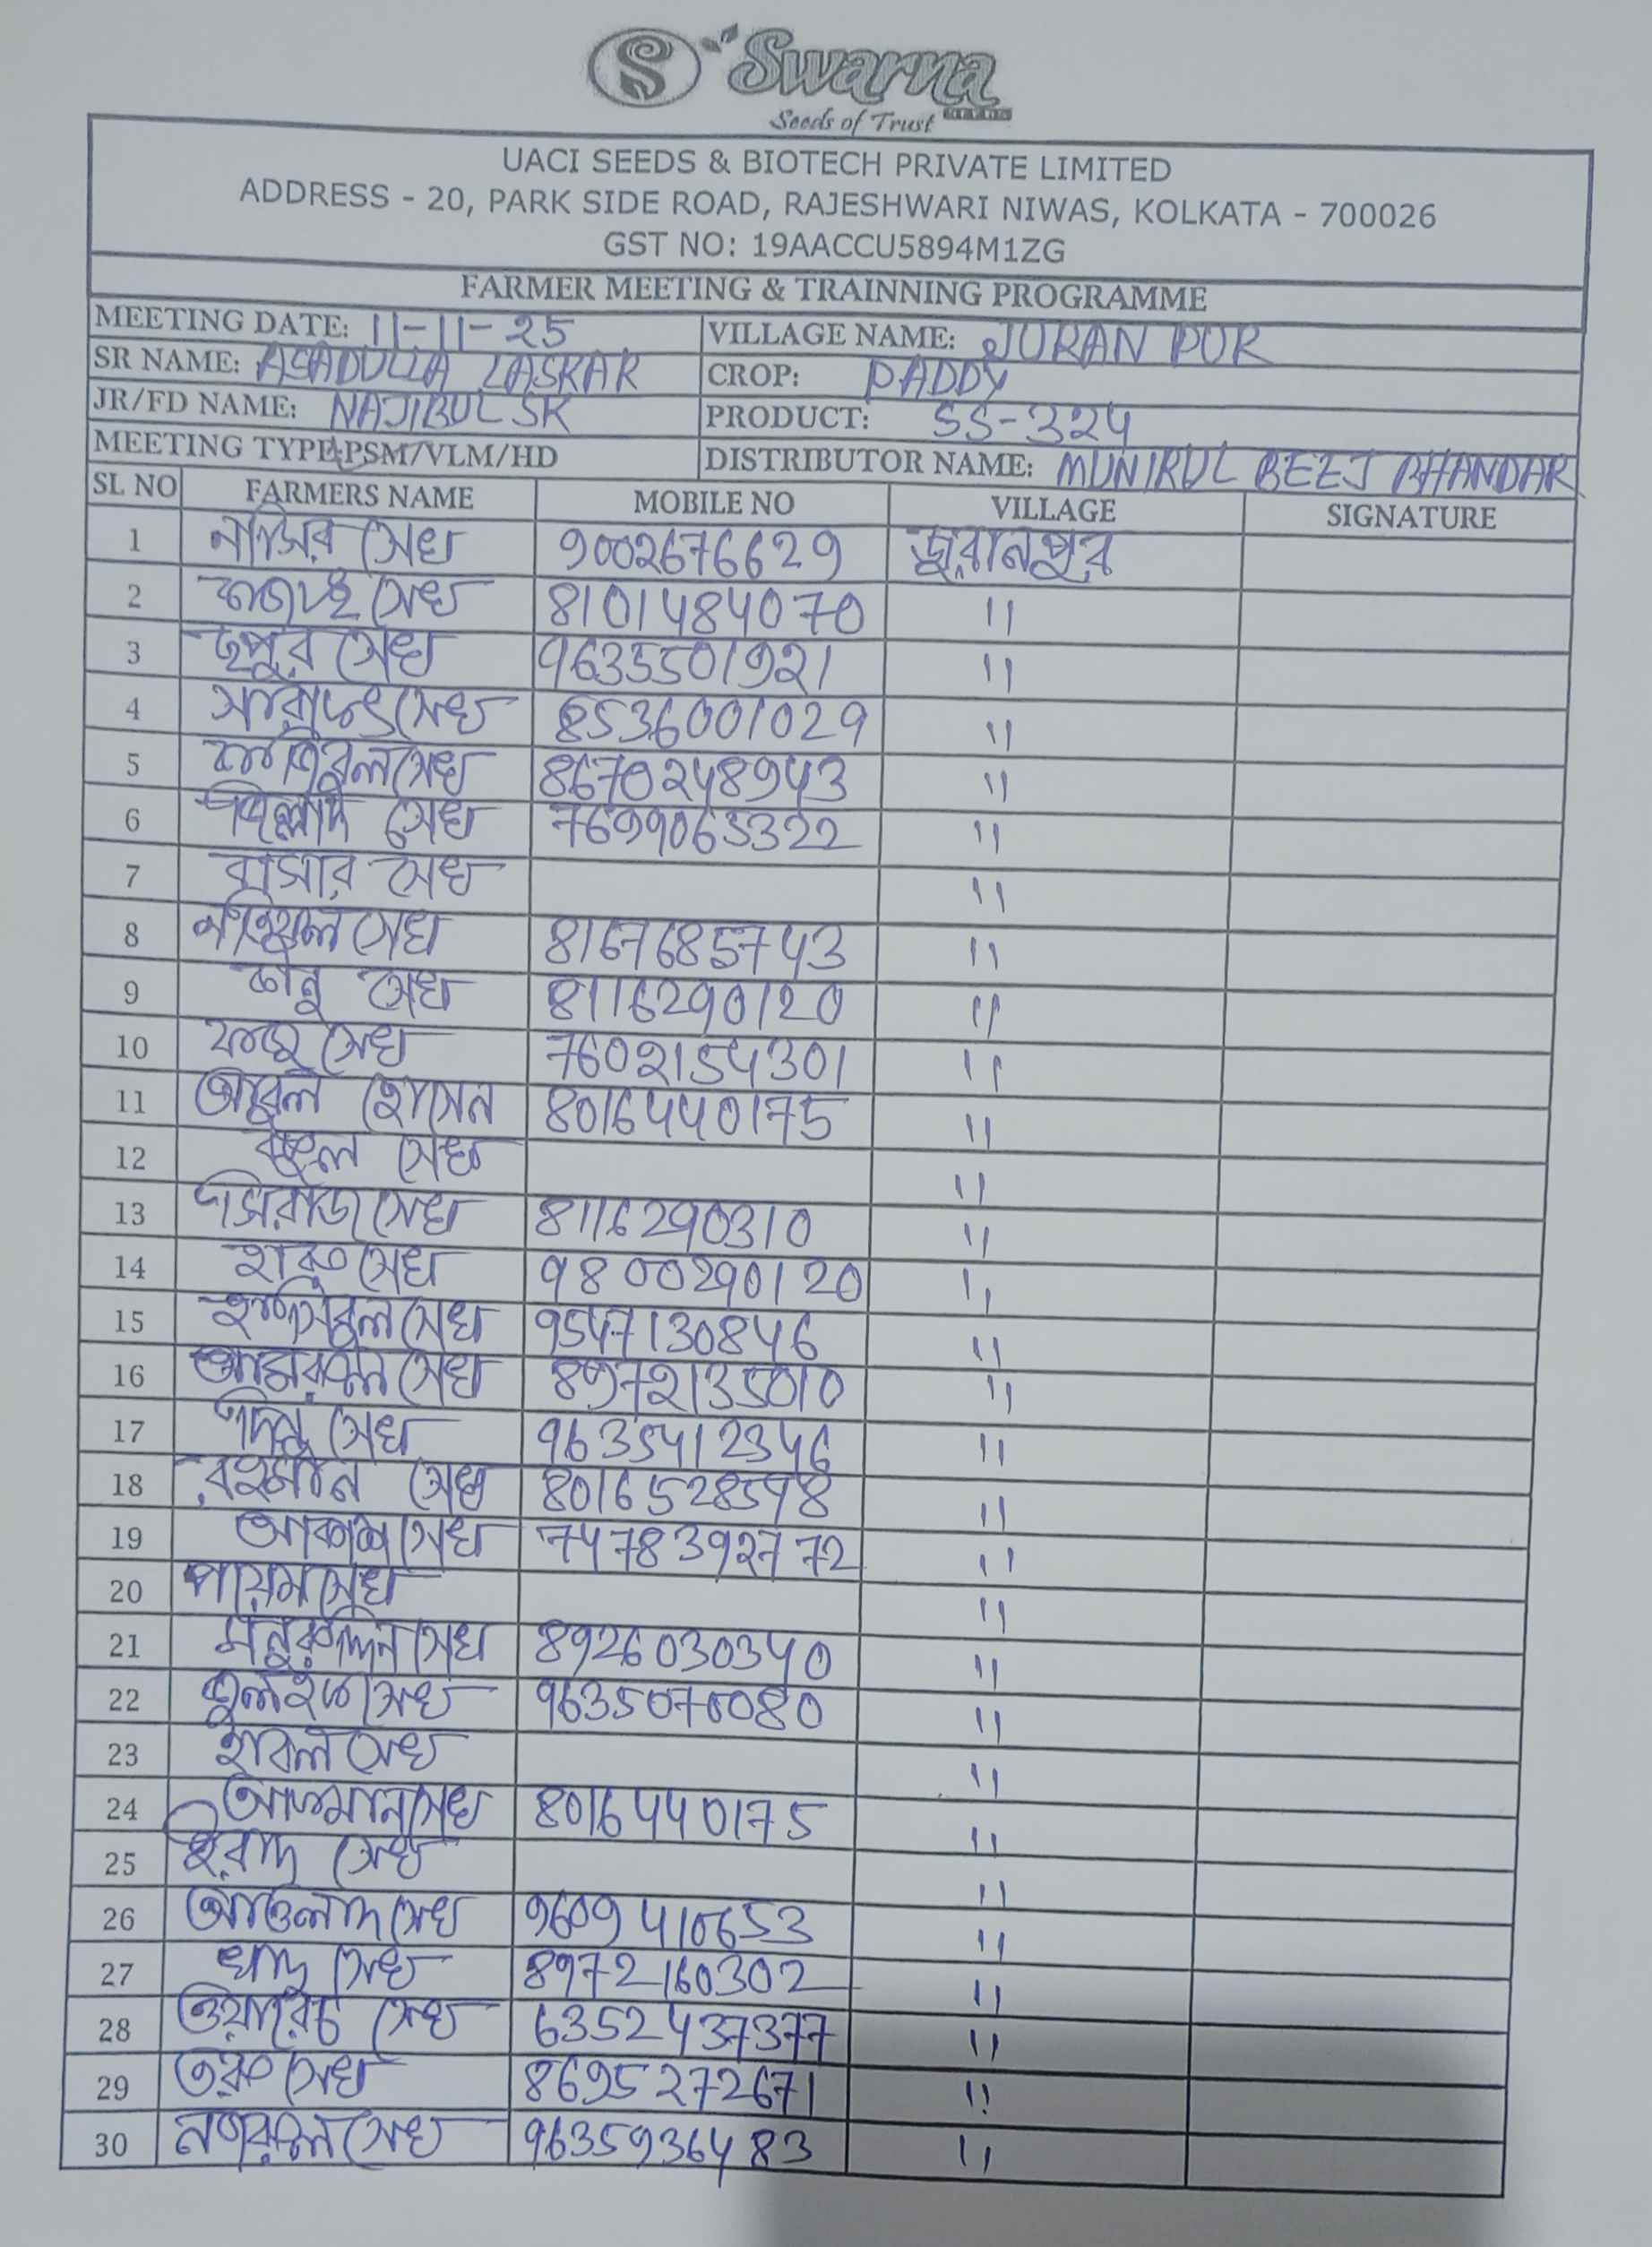 Swarna
Seeds of Trust
UACI SEEDS & BIOTECH PRIVATE LIMITED
ADDRESS - 20, PARK SIDE ROAD, RAJESHWARI NIWAS, KOLKATA - 700026
GST NO: 19AACCU5894M1ZG
FARMER MEETING & TRAINNING PROGRAMME
MEETING DATE: 11-11-25 VILLAGE NAME: JURANPUR
SR NAME: ASADULLA LASKAR CROP: PADDY
JR/FD NAME: NAJIBUL SK PRODUCT: SS-324
MEETING TYPE: PSM/VLM/HD DISTRIBUTOR NAME: MUNIRUL BEEJ BHANDAR
SL NO FARMERS NAME MOBILE NO VILLAGE SIGNATURE
1 নাসির সেখ 9002676629 জুরানপুর
2 সেখ 8101484070 11
3 সেখ 9635501921 11
4 সেখ 8536001029 11
5 সেখ 8670248943 11
6 সেখ 7699065322 11
7 সেখ 11
8 সেখ 8167685743 11
9 সেখ 8116290120 11
10 সেখ 7602154301 11
11 আবুল হোসেন 8016440175 11
12 সেখ 11
13 সিরাজ সেখ 8116290310 11
14 হারু সেখ 9800290120 11
15 হাসিবুল সেখ 9547130846 11
16 সেখ 8972135010 11
17 সেখ 9635412346 11
18 রহমান সেখ 8016528548 11
19 আকাশ সেখ 7478392772 11
20 পায়েম সেখ 11
21 সেখ 8926030340 11
22 সেখ 9635076080 11
23 সেখ 11
24 আজমান সেখ 8016440175 11
25 সেখ 11
26 আওলাদ সেখ 9609410653 11
27 সেখ 8972160302 11
28 ওয়ারেচ সেখ 6352437377 11
29 তরু সেখ 8695272671 11
30 নজরুল সেখ 9635936483 11